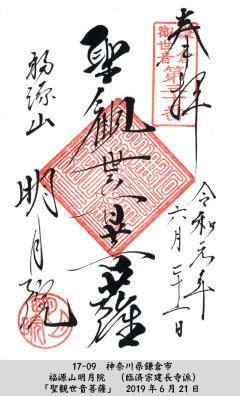 奉拝
鎌倉
観世音
第三十番
聖観世音菩薩
令和元年
六月二十一日
福源山
明月院
17-09 神奈川県鎌倉市
福源山明月院 （臨済宗建長寺派）
「聖観世音菩薩」 2019年6月21日